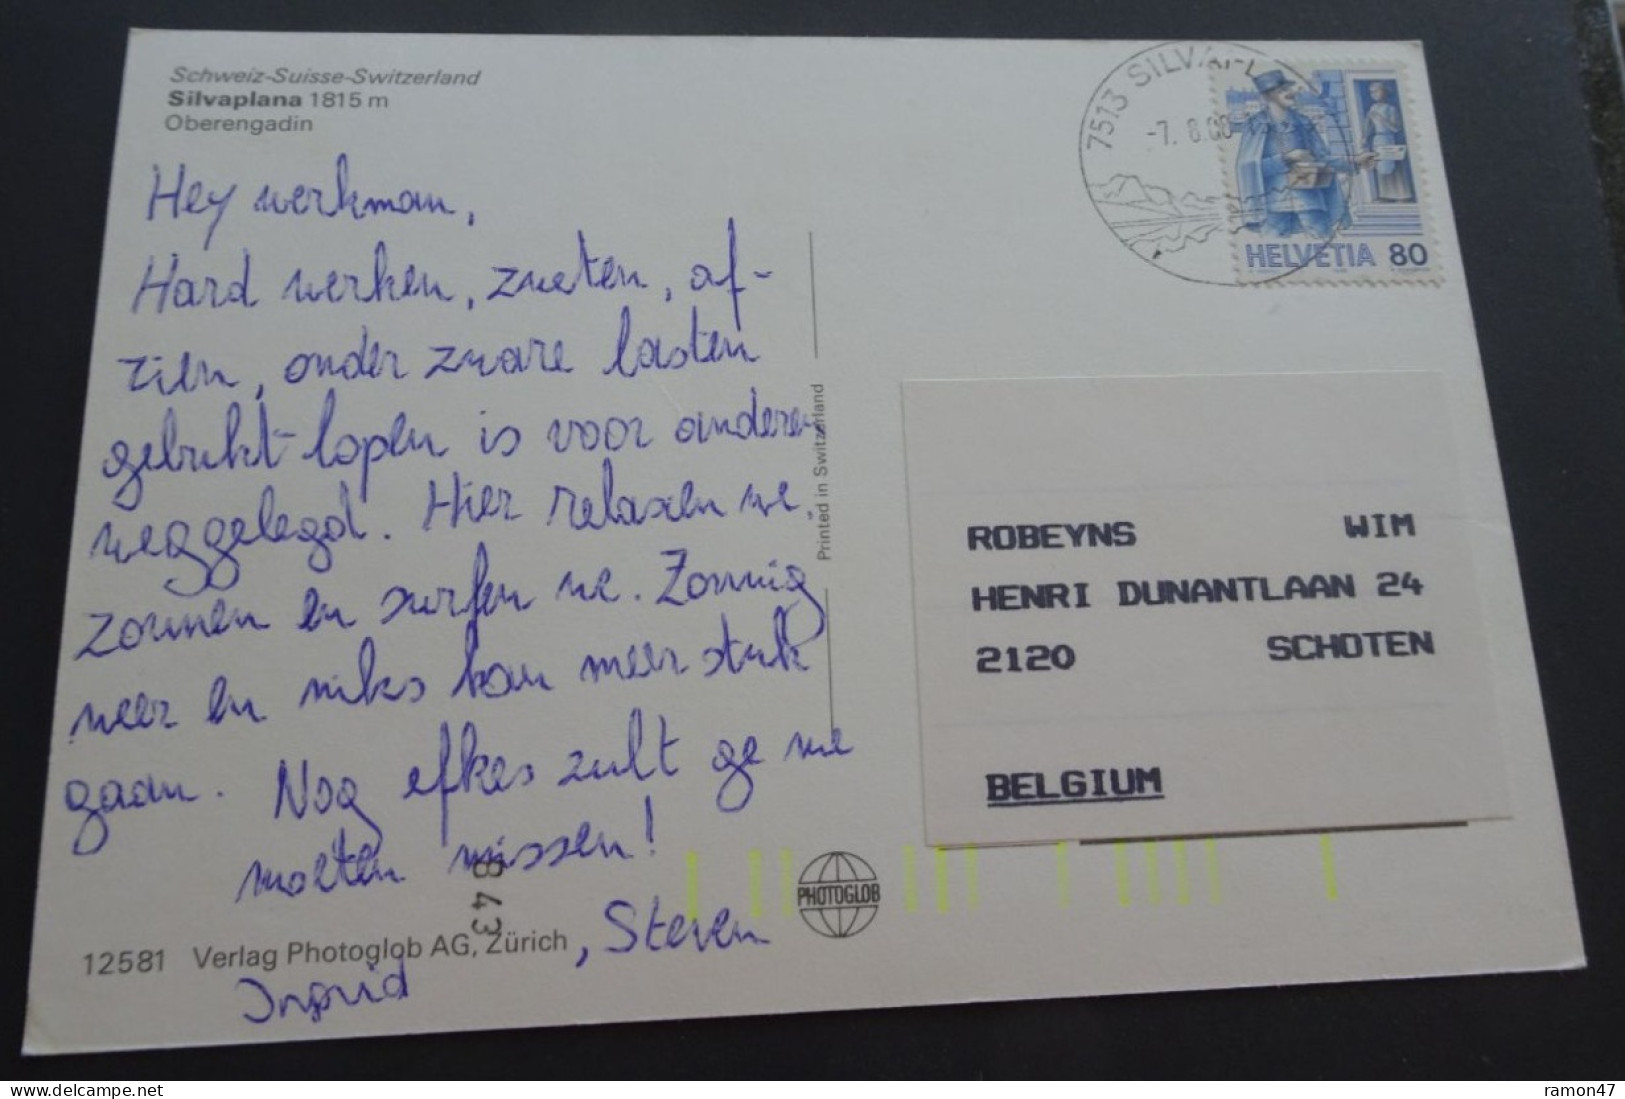 Schweiz-Suisse-Switzerland
Silvaplana 1815 m
Oberengadin
Hey werkman,
Hard werken, zweten, af-
zien, onder zware lasten
gebukt lopen is voor anderen
weggelegd. Hier relaxen we,
zonnen en surfen we. Zonnig
weer en niks kan meer stuk
gaan. Nog efkes zult ge me
moeten missen!
Ingrid, Steven
12581 Verlag Photoglob AG, Zürich
843
Printed in Switzerland
PHOTOGLOB
7513
-7. 8.
HELVETIA 80
ROBEYNS WIM
HENRI DUNANTLAAN 24
2120 SCHOTEN
BELGIUM
www.delcampe.net
ramon47